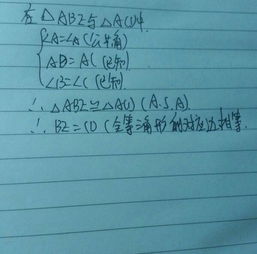 在△ABE与△ACD中
∠A=∠A(公共角)
AB=AC(已知)
∠B=∠C(已知)
∴△ABE≌△ACD(A.S.A)
∴BE=CD(全等三角形的对应边相等.